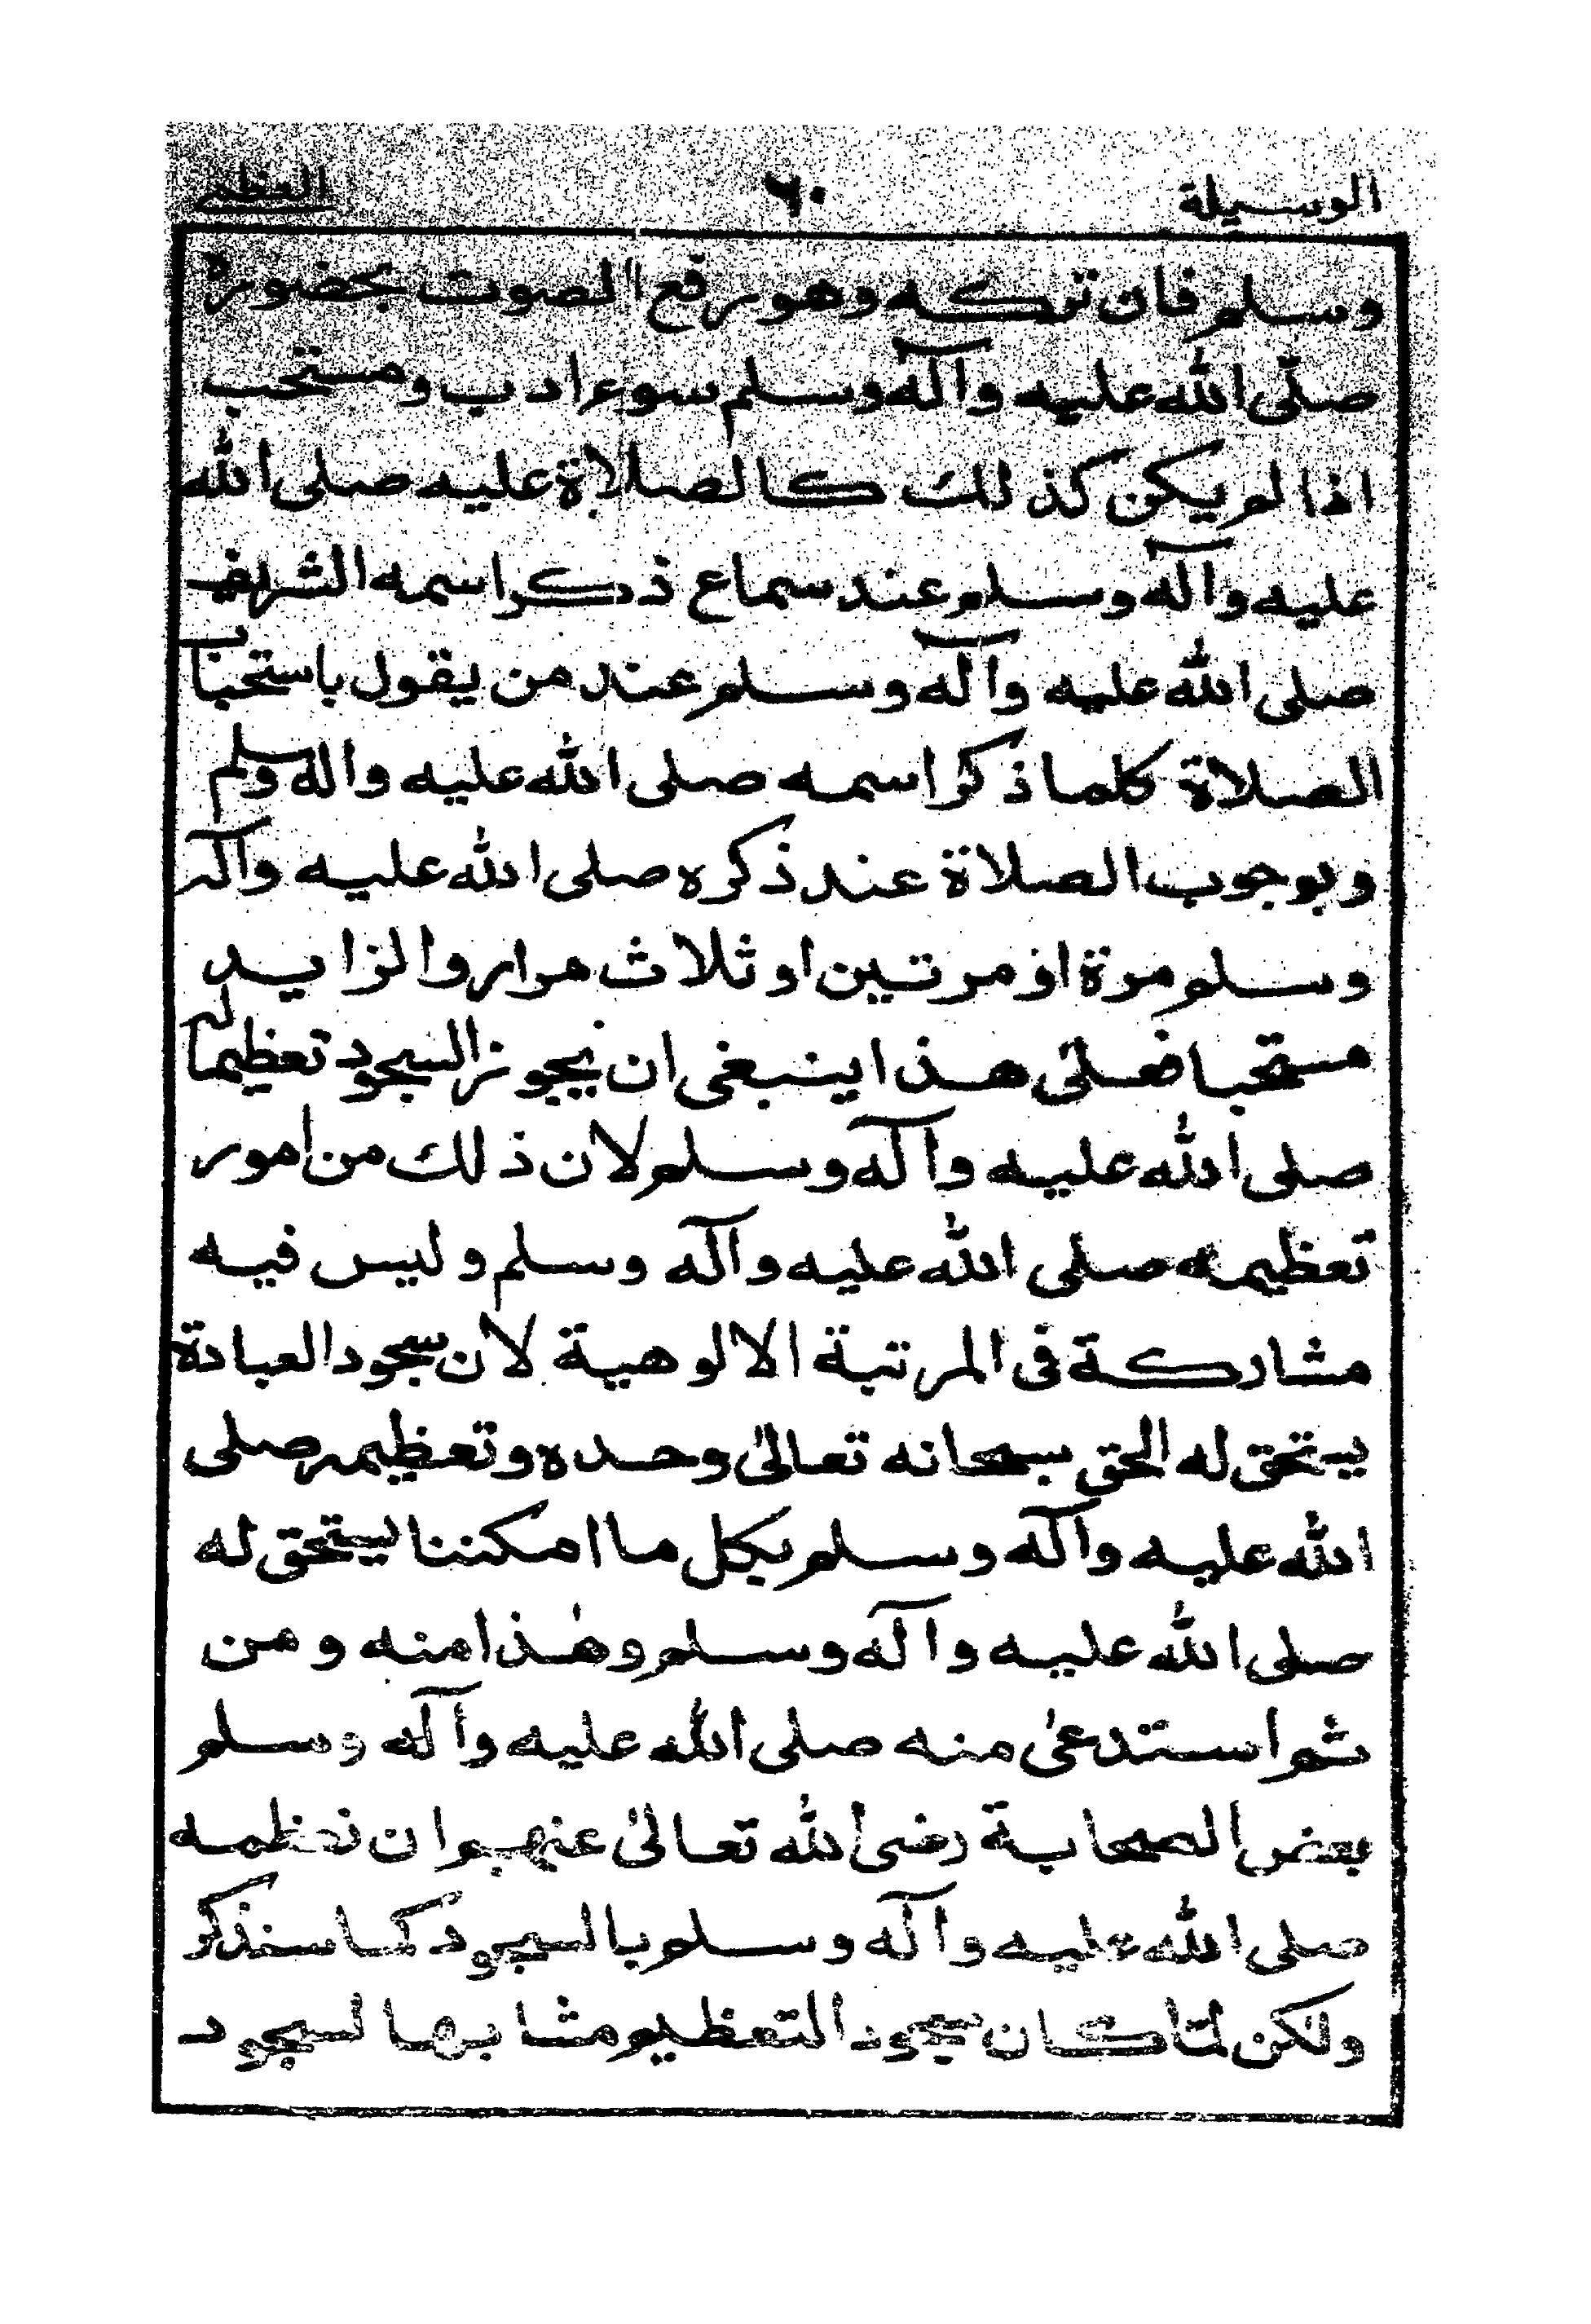 الوسيلة ٦٠ العظمى
وسلم فان تركه وهو رفع الصوت بحضوره
صلّى الله عليه وآله وسلم سوء ادب ومستحب
اذا لم يكن كذلك كالصلاة عليه صلى الله
عليه وآله وسلم عند سماع ذكر اسمه الشريف
صلى الله عليه وآله وسلم عند من يقول باستحباب
الصلاة كلما ذكر اسمه صلى الله عليه واله وسلم
وبوجوب الصلاة عند ذكره صلى الله عليه وآله
وسلم مرة او مرتين او ثلاث مرار والزايد
مستحبا فعلى هذا ينبغى ان يجوز السجود تعظيما له
صلى الله عليه وآله وسلم لان ذلك من امور
تعظيمه صلى الله عليه وآله وسلم وليس فيه
مشاركة فى المرتبة الالوهية لان سجود العبادة
يستحق له الحق سبحانه تعالىٰ وحده وتعظيمه صلى
الله عليه وآله وسلم بكل ما امكننا يستحق له
صلى الله عليه وآله وسلم وهٰذا منه ومن
ثم استدعىٰ منه صلى الله عليه وآله وسلم
بعض الصحابة رضى الله تعالىٰ عنهم ان نعظمه
صلى الله عليه وآله وسلم بالسجود كما سنذكر
ولكن لمّا كان سجود التعظيم مشابها لسجود